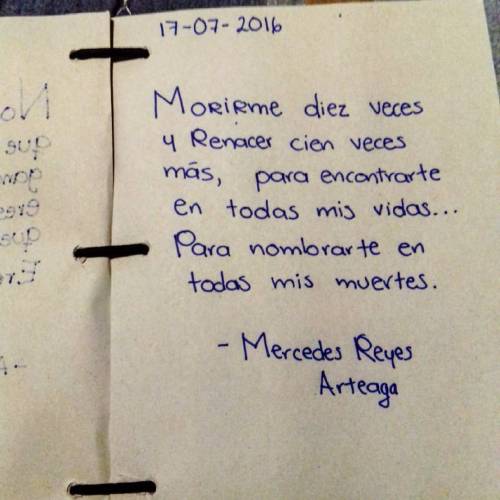 17-07-2016
Morirme diez veces
y Renacer cien veces
más, para encontrarte
en todas mis vidas...
Para nombrarte en
todas mis muertes.
- Mercedes Reyes
Arteaga
No
que
eres
que
Ere
- A